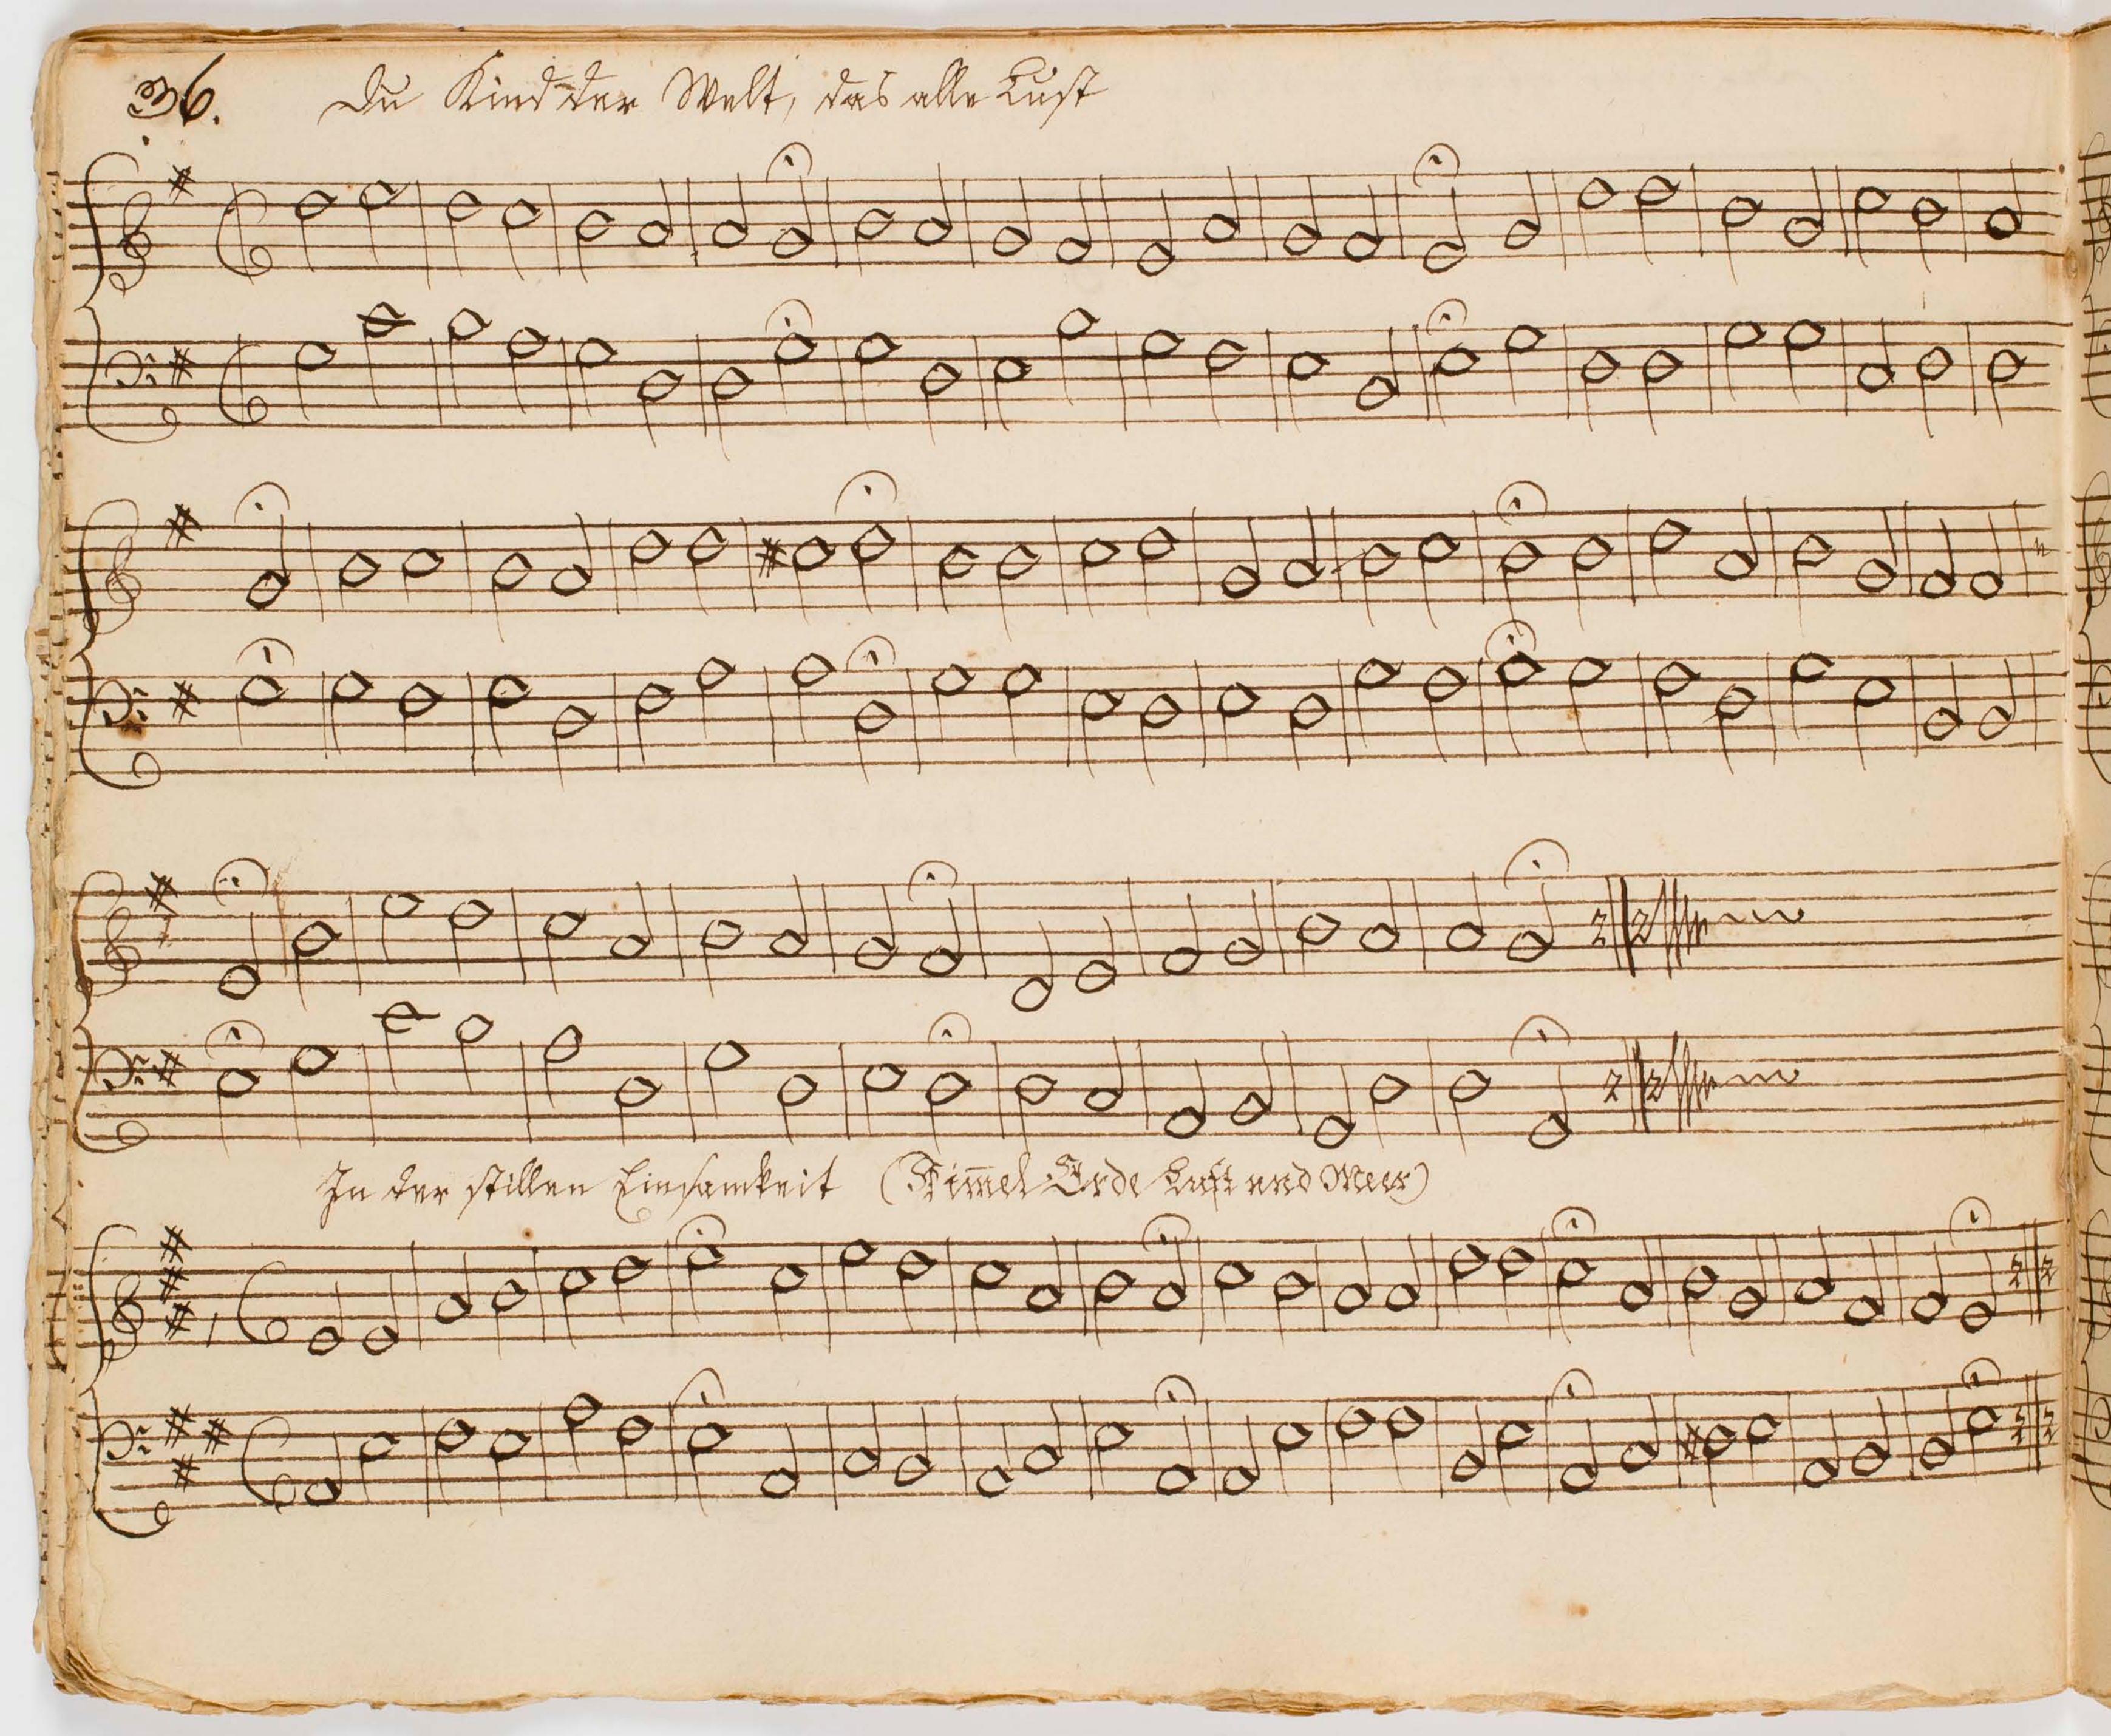 36. Du Kind der Welt, das alle Lust
In der stillen Einsamkeit (Him̅el Erde Luft und Meer)